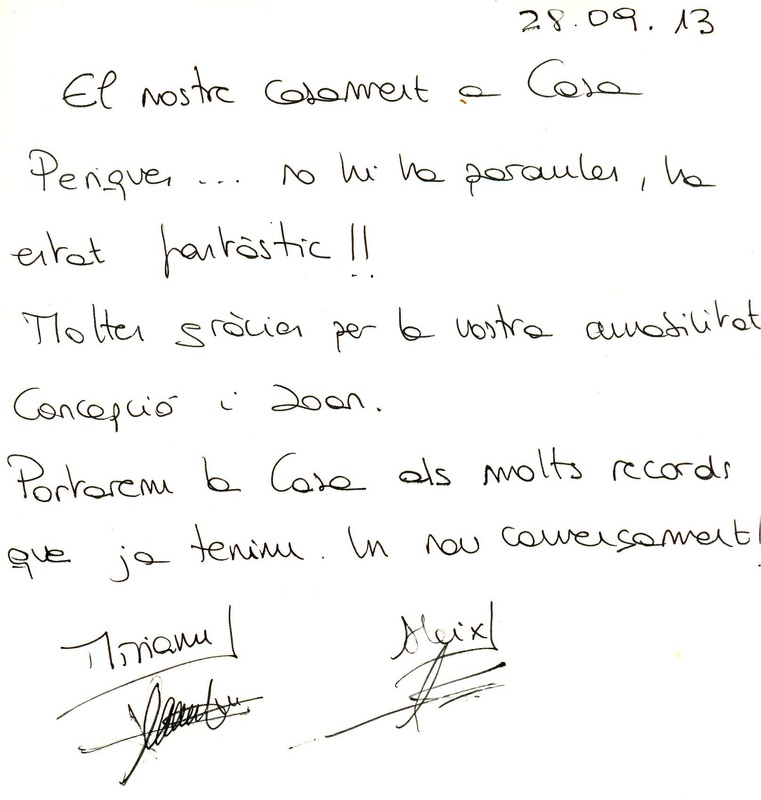 28.09.13
El nostre casament a Casa
Periques... no hi ha paraules, ha
estat fantàstic!!
Moltes gràcies per la vostra amabilitat
Concepció i Joan.
Portarem la Casa als molts records
que ja tenim. Un nou començament!
Miriam
Aleix